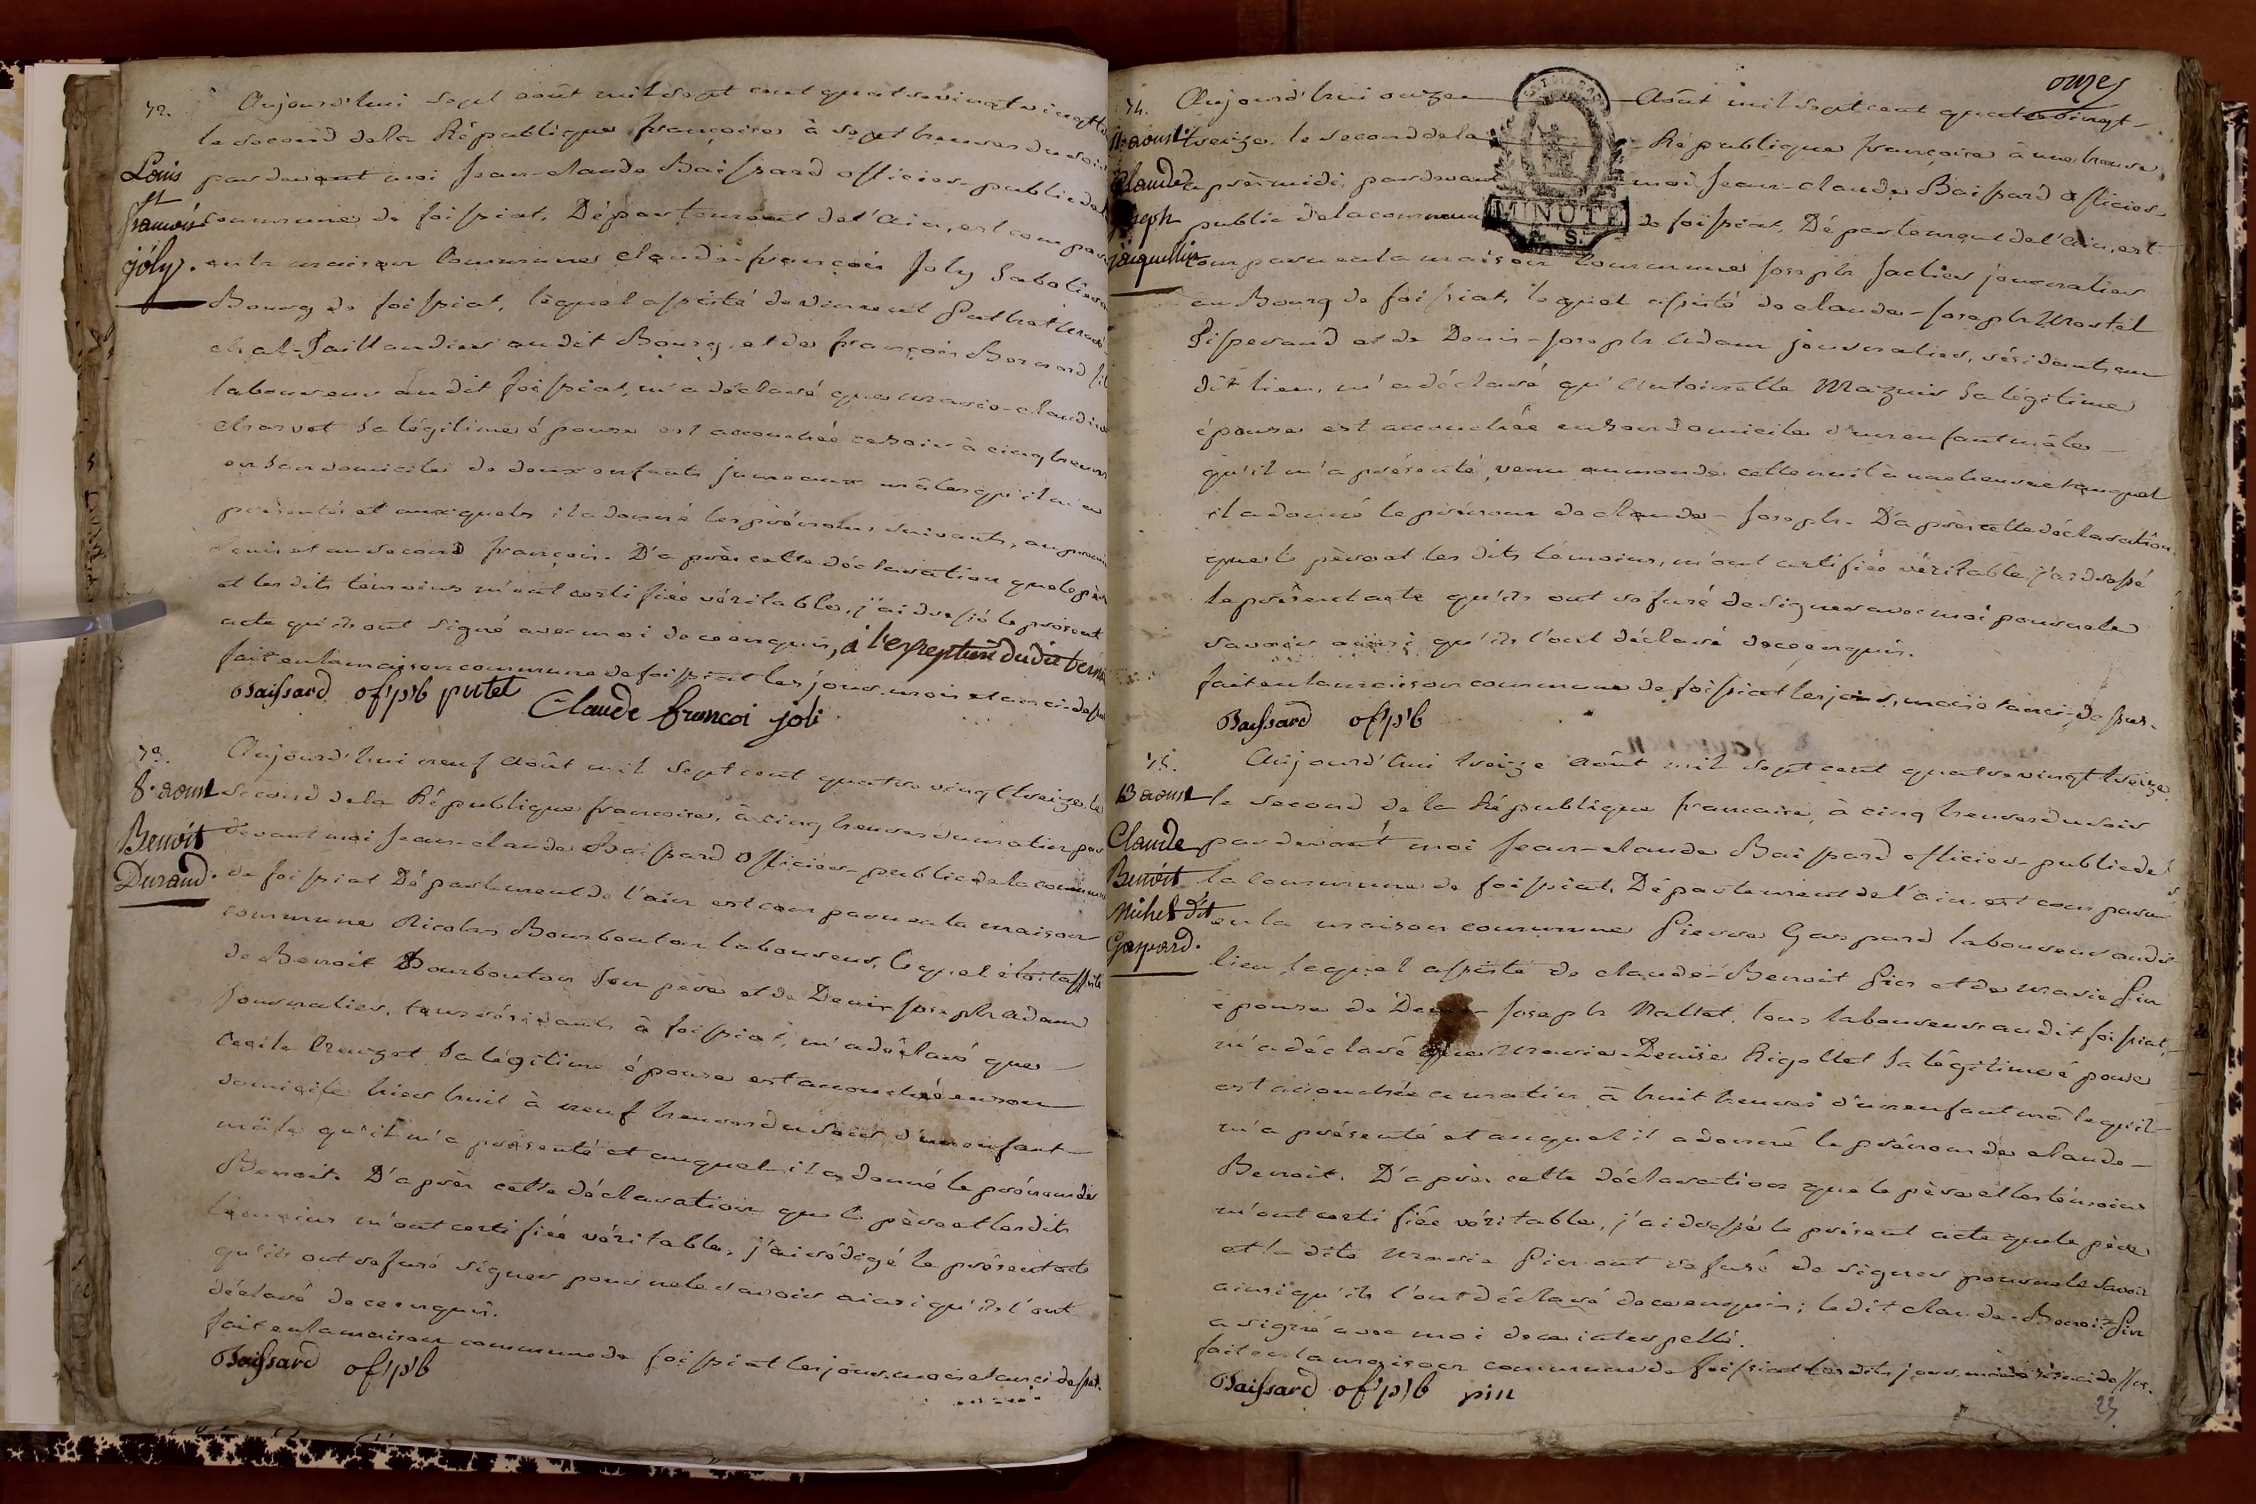 72.
Aujourd'hui sept août mil sept cent quatrevingt
le second dela République françoise, à sept heures du soir
Louis
et
françois
joly.
pardevant moi Jean-claude Baissard officier-public de
commune de foissiat, Département de l'ain, est comparu
en la maison commune claude-françois Joly Sabotier
Bourg de foissiat, lequel assisté de vincent Puthet maré-
chal-Taillandier audit Bourg et de françois Bernard
laboureur audit foissiat, m'a déclaré que marie-claudine
charvet sa légitime épouse est accouchée ce soir à cinq heures
en son domicile de deux enfants jumeaux mâles qu'il m'a
présentés et auxquels il a donné les prénoms suivants, au premier
Louis et au second françois. D'après cette déclaration que le père
et les dits témoins m'ont certifiée véritable, j'ai dressé le présent
acte qu'ils ont signé avec moi de ce enquis, à l'exception dudit bernard
fait en la maison commune de foissiat les jour, mois et an ci-dessus
Baissard of. p'b putet
Claude francoi joli
73.
8. aoust
Benoit
Durand.
Aujourd'hui neuf Août mil sept cent quatre vingt treize le
second dela République françoise, à cinq heures du matin par
devant moi Jean-claude Baissard officier-public de la commune
de foissiat Département de l'ain est comparu en la maison
commune Nicolas Bourbouton laboureur, lequel étoit assisté
de Benoit Bourbouton son père et de Denis-joseph adam
journalier, tous résidants à foissiat, m'a déclaré que
Cecile sa légitime épouse est accouchée en son
domicile hier huit à neuf heures du soir d'un enfant
mâle qu'il m'a présenté et auquel il a donné le prénom de
Benoit. D'après cette déclaration que le père et les dits
témoins m'ont certifiée véritable, j'ai rédigé le présent acte
qu'ils ont refusé signer pour ne le savoir ainsi qu'ils l'ont
déclaré de ce enquis.
fait en la maison commune de foissiat les jour, mois et an ci dessus.
Baissard of. p'b
onzes
74.
11. aoust
Claude
joseph
jaquillier
Aujourd'hui onze Août mil sept cent quatrevingt-
treize. le second de la République françoise à une heure
après midi, pardevant moi Jean-claude Baissard officier-
public de la commune de foissiat, Département de l'ain, est
MINUTE
comparu en la maison commune joseph journalier
au Bourg de foissiat, lequel assisté de claude-joseph
et de Denis-joseph Adam journalier, résidants au
dit lieu, m'a déclaré qu'Antoinette sa légitime
épouse est accouchée en son domicile d'un enfant mâle
qu'il m'a présenté, venu au monde cette nuit à une heure et auquel
il a donné le prénom de claude-joseph. D'après cette déclaration
que le père et les dits témoins, m'ont certifiée véritable, j'ai dressé
le présent acte qu'ils ont refusé de signer avec moi pour ne le
savoir ainsi qu'ils l'ont déclaré de ce enquis.
fait en la maison commune de foissiat les jour, mois et an ci-dessus.
Baissard of. p'b
75.
13 aoust
Claude
Benoit
Michel dit
Gaspard.
Aujourd'hui treize Août mil sept cent quatrevingt treize
le second de la République francaise, à cinq heures du soir
pardevant moi Jean-claude Baissard officier-public de
la commune de foissiat, Département de l'ain, est comparu
en la maison commune Pierre Gaspard laboureur audit
lieu, lequel assisté de claude-Benoit Pin et de marie Pin
épouse de Denis-Joseph Nallet, tous laboureurs audit foissiat,
m'a déclaré que marie-Denise Rigollet sa légitime épouse
est accouchée ce matin à huit heures d'un enfant mâle qu'il
m'a présenté et auquel il a donné le prénom de claude-
Benoit. D'après cette déclaration que le père et les témoins
m'ont certifiée véritable, j'ai dressé le présent acte que le père
et la dite marie Pin ont refusé de signer pour ne le savoir
ainsi qu'ils l'ont déclaré de ce enquis; ledit claude-Benoit Pin
a signé avec moi de ce interpellé.
fait en la maison commune de foissiat les dits jour, mois et an ci dessus.
Baissard of. p'b pin
23